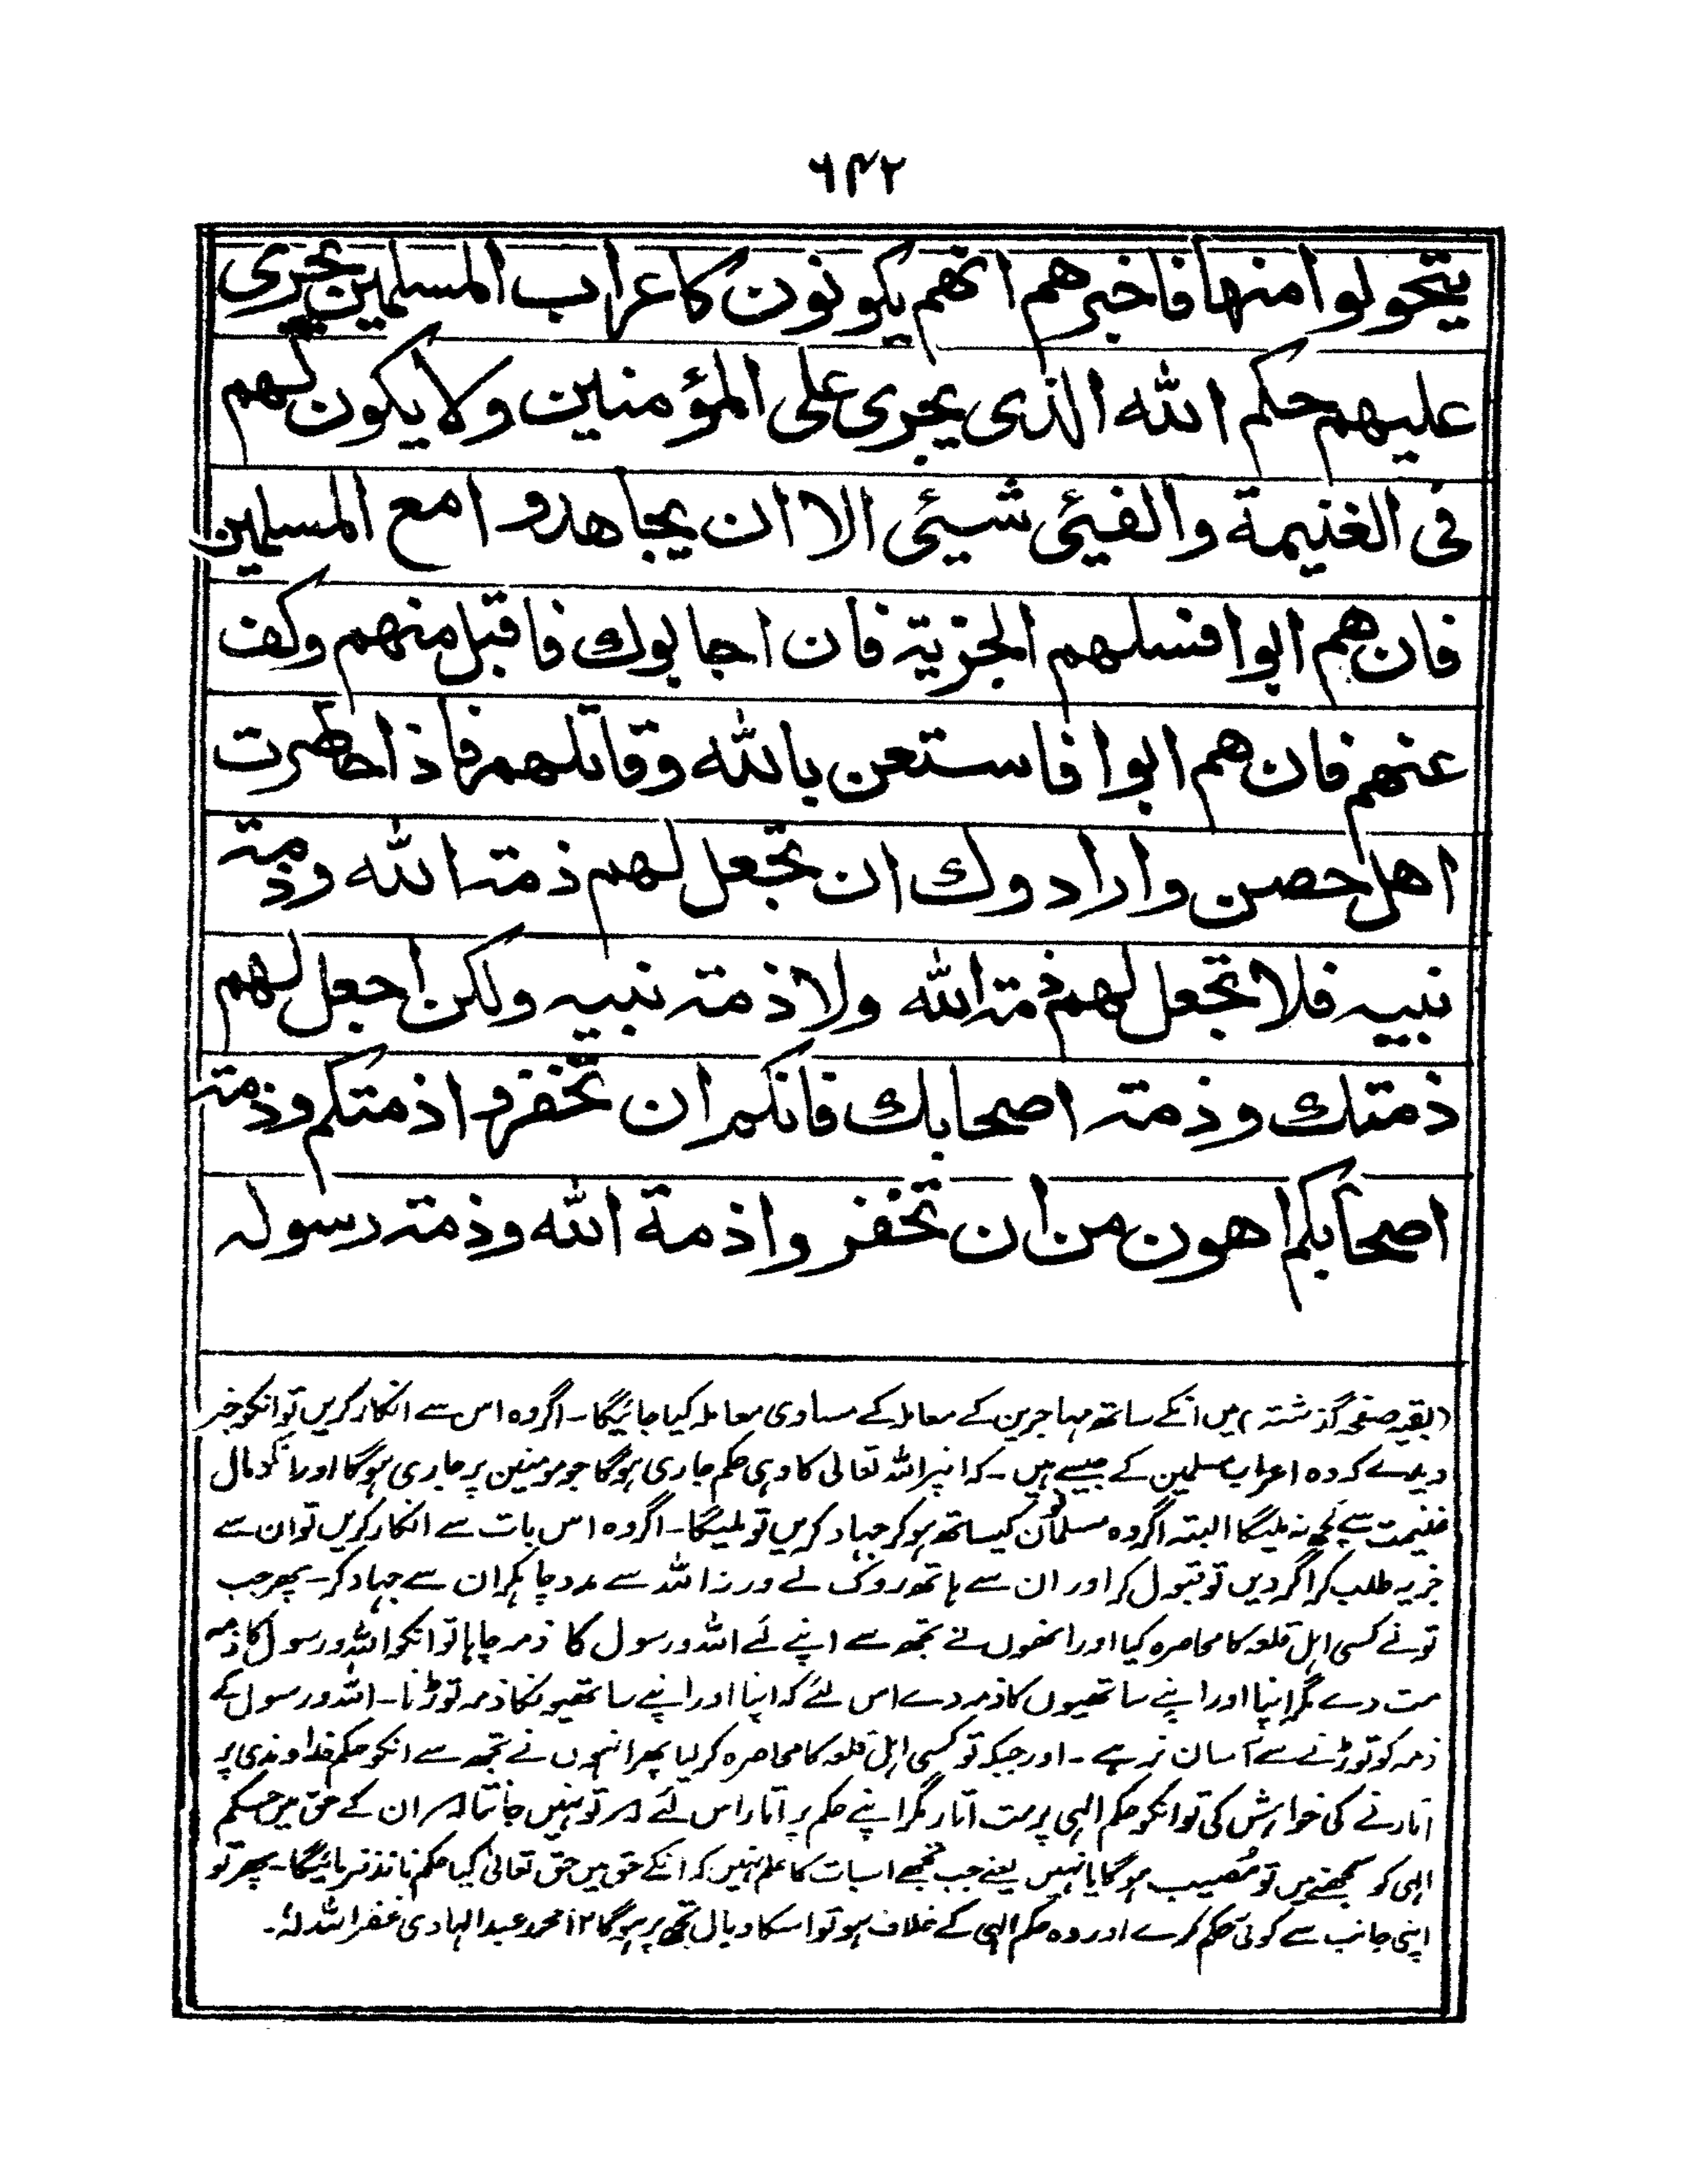 ۶۴۲
يتحولوا منها فاخبرهم انهم يكونون كاعراب المسلمين يجرى
عليهم حكم الله الذى يجرى على المؤمنين ولا يكون لهم
فى الغنيمة والفيئى شيئى الا ان يجاهدوا مع المسلمين
فان هم ابوا فسلهم الجزية فان اجابوك فاقبل منهم وكف
عنهم فان هم ابوا فاستعن بالله وقاتلهم فاذا حاصرت
اهل حصن وارادوك ان تجعل لهم ذمة الله وذمة
نبيه فلا تجعل لهم ذمة الله ولا ذمة نبيه ولكن اجعل لهم
ذمتك وذمة اصحابك فانكم ان تخفروا ذمتكم وذمة
اصحابكم اهون من ان تخفروا ذمة الله وذمة رسوله
(بقیہ صفحہ گذشتہ) میں انکے ساتھ مہاجرین کے معاملہ کے مساوی معاملہ کیا جائیگا۔ اگر وہ اس سے انکار کریں تو انکو خبر
دیدے کہ وہ اعراب مسلمین کے جیسے ہیں۔ کہ انپر اللہ تعالی کا وہی حکم جاری ہوگا جو مومنین پر جاری ہوگا اور انکو مال
غنیمت سے کچھ نہ ملیگا البتہ اگر وہ مسلمانوں کیساتھ ہوکر جہاد کریں تو ملیگا۔ اگر وہ اس بات سے انکار کریں تو ان سے
جزیہ طلب کر اگر دیں تو قبول کر اور ان سے ہاتھ روک لے ورنہ اللہ سے مدد چاہکر ان سے جہاد کر۔ پھر جب
تو نے کسی اہل قلعہ کا محاصرہ کیا اور انھوں نے تجھ سے اپنے لئے اللہ ورسول کا ذمہ چاہا تو انکو اللہ ورسول کا ذمہ
مت دے مگر اپنا اور اپنے ساتھیوں کا ذمہ دے اس لئے کہ اپنا اور اپنے ساتھیونکا ذمہ توڑنا۔ اللہ ورسول کے
ذمہ کو توڑنے سے آسان تر ہے۔ اور جبکہ تو کسی اہل قلعہ کا محاصرہ کرلیا پھر انہوں نے تجھ سے انکو حکم خداوندی پر
اتارنے کی خواہش کی تو انکو حکم الہی پر مت اتار مگر اپنے حکم پر اتار اس لئے کہ تو نہیں جانتا کہ ان کے حق میں حکم
الہی کو سمجھنے میں تو مُصیب ہوگا یا نہیں یعنے جب تجھے اسبات کا علم نہیں کہ انکے حق میں حق تعالیٰ کیا حکم نافذ فرمائیگا۔ پھر تو
اپنی جانب سے کوئی حکم کرے اور وہ حکم الہی کے خلاف ہو تو اسکا وبال تجھ پر ہوگا ۱۲ محمد عبد الہادی غفر اللہ لہٗ۔